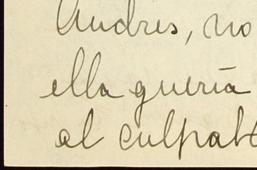 Andres, no
ella queria
al culpab